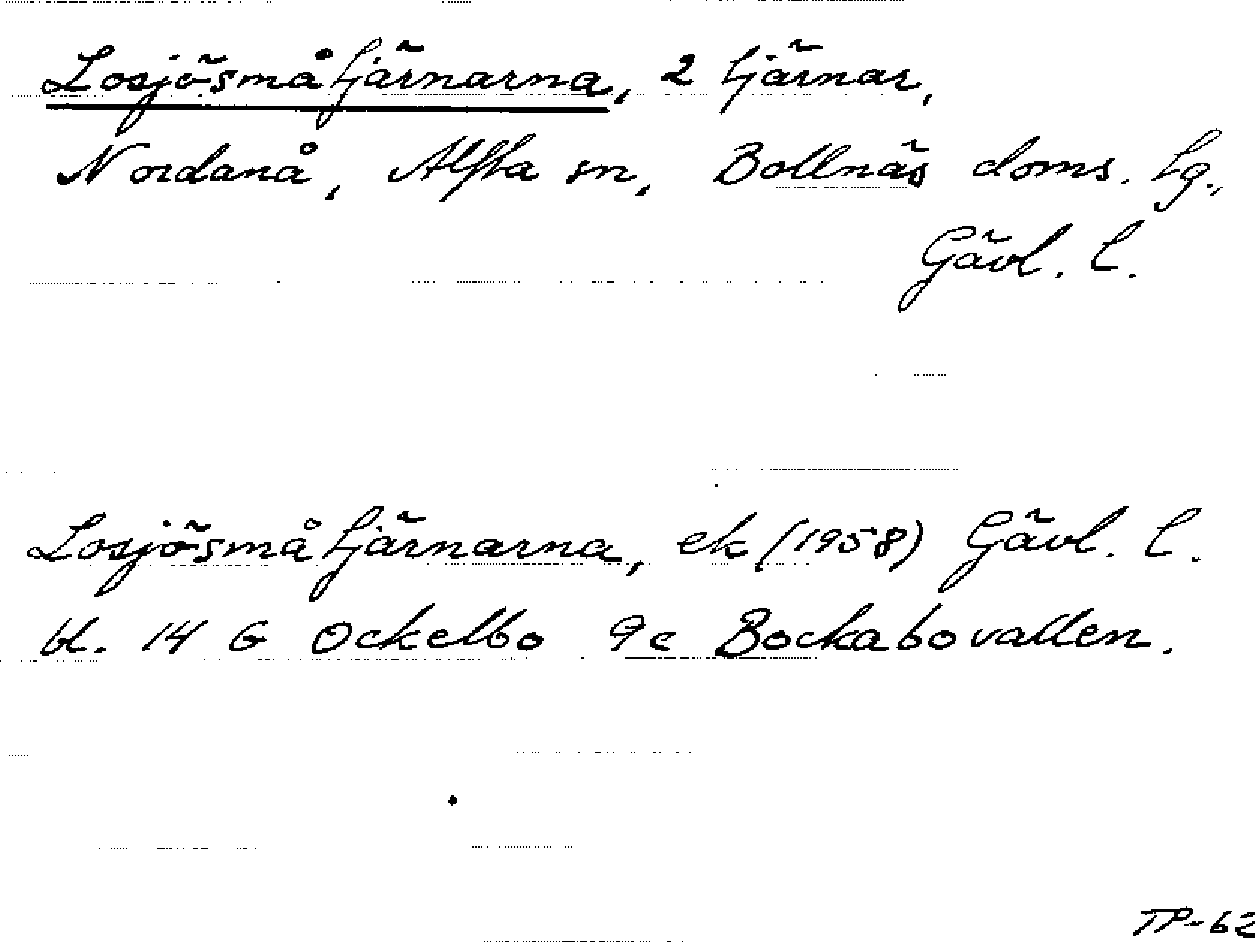 Losjösmåtjärnarna, 2 tjärnar,
Nordanå, Alfta sn, Bollnäs doms. tg.,
Gävl. l.
Losjösmåtjärnarna, ek (1958) Gävl. l.
bl. 14 G Ockelbo 9c Bockabovallen.
TP-62